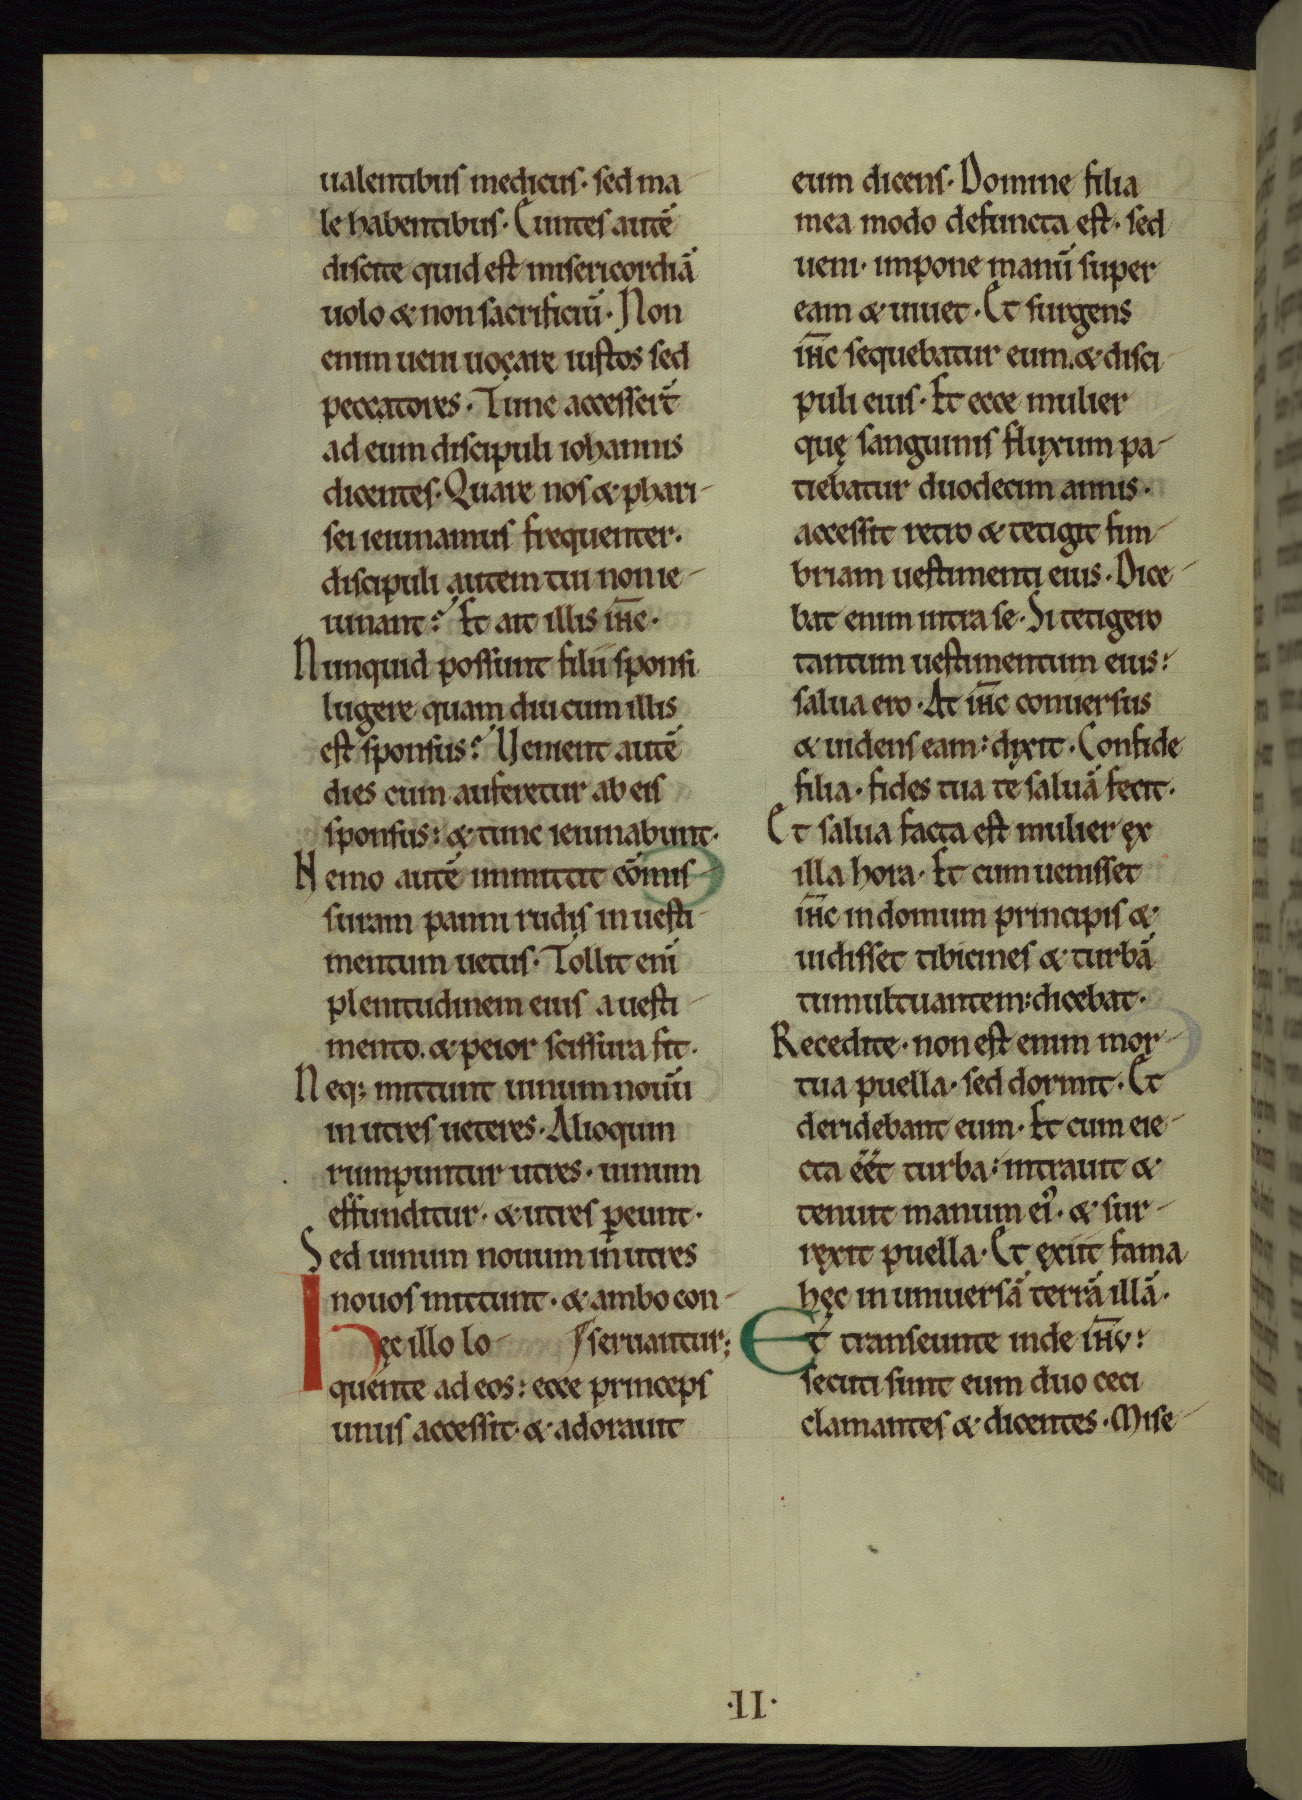 ualentibus medicus· sed ma-
le habentibus· Euntes autē
discite quid est misericordiā
uolo & non sacrificiū· Non
enim ueni uocare iustos sed
peccatores· Tunc accessert̄
ad eum discipuli iohannis
dicentes· Quare nos & phari-
sei ieiunamus frequenter·
discipuli autem tui non ie-
iunant? Et ait illis ih̄c·
Nunquid possunt filii sponsi
lugere quam diu cum illis
est sponsus? Uenient autē
dies cum auferetur ab eis
sponsus: & tunc ieiunabunt·
Nemo autē inmittit cōmis-
suram panni rudis in uesti-
mentum uetus· Tollit eni᷄
plenitudinem eius a uesti-
mento. & peior scissura fit·
Neq; mittunt uinum nouū
in utres ueteres· Alioquin
rumpuntur utres· uinum
effunditur· & utres ꝑeunt·
Sed uinum nouum in utres
nouos mittunt· & ambo con-
Hęc illo lo- seruantur;
quente ad eos: ecce princeps
unus accessit· & adorauit
eum dicens· Domine filia
mea modo defuncta est· sed
ueni· impone manū super
eam & uiuet· Et surgens
ih̄c sequebatur eum. & disci-
puli eius· Et ecce mulier
quę sanguinis fluxum pa-
tiebatur duodecim annis·
accessit retro & tetigit fim-
briam uestimenti eius· Dice-
bat enim intra se· Si tetigero
tantum uestimentum eius:
salua ero· At ih̄c conuersus
& uidens eam: dixit· Confide
filia· fides tua te saluā fecit·
Et salua facta est mulier ex
illa hora· Et cum uenisset
ih̄c in domum principis &
uidisset tibicines & turbā
tumultuantem: dicebat·
Recedite· non est enim mor-
tua puella· sed dormit· Et
deridebant eum· Et cum eie-
cta eēt turba: intrauit &
tenuit manum ei᾽· & sur-
rexit puella· Et exiit fama
hęc in uniuersā terrā illā·
Et transeunte inde ih̄u:
secuti sunt eum duo ceci
clamantes & dicentes· Mise-
·II·